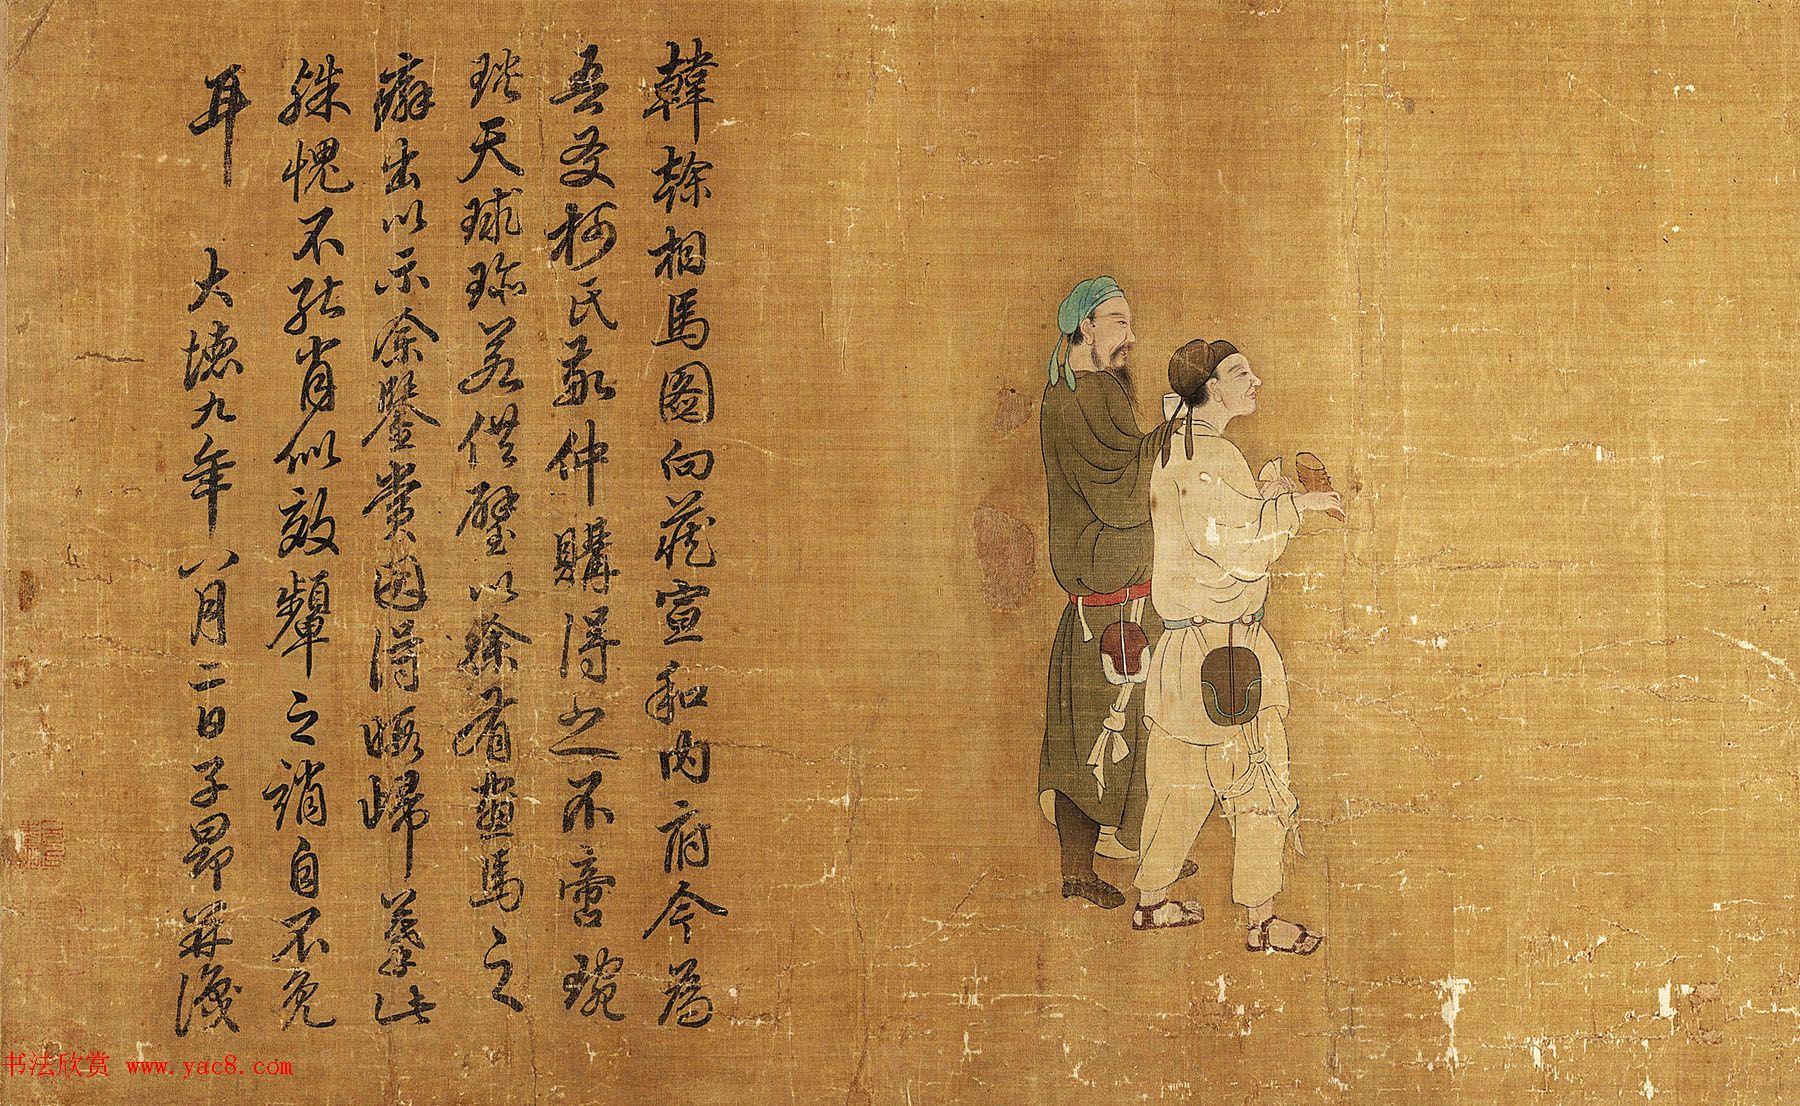 韓幹相馬圖向藏宣和內府今為
吾友柯氏敬仲購得之不啻琬
琰天球珎若供璧以徐有畫馬之
癖出以示余鑒賞因得暇歸摹此
殊愧不能肖似效顰之誚自不免
耳 大德九年八月二日子昂并識
书法欣赏 www.yac8.com